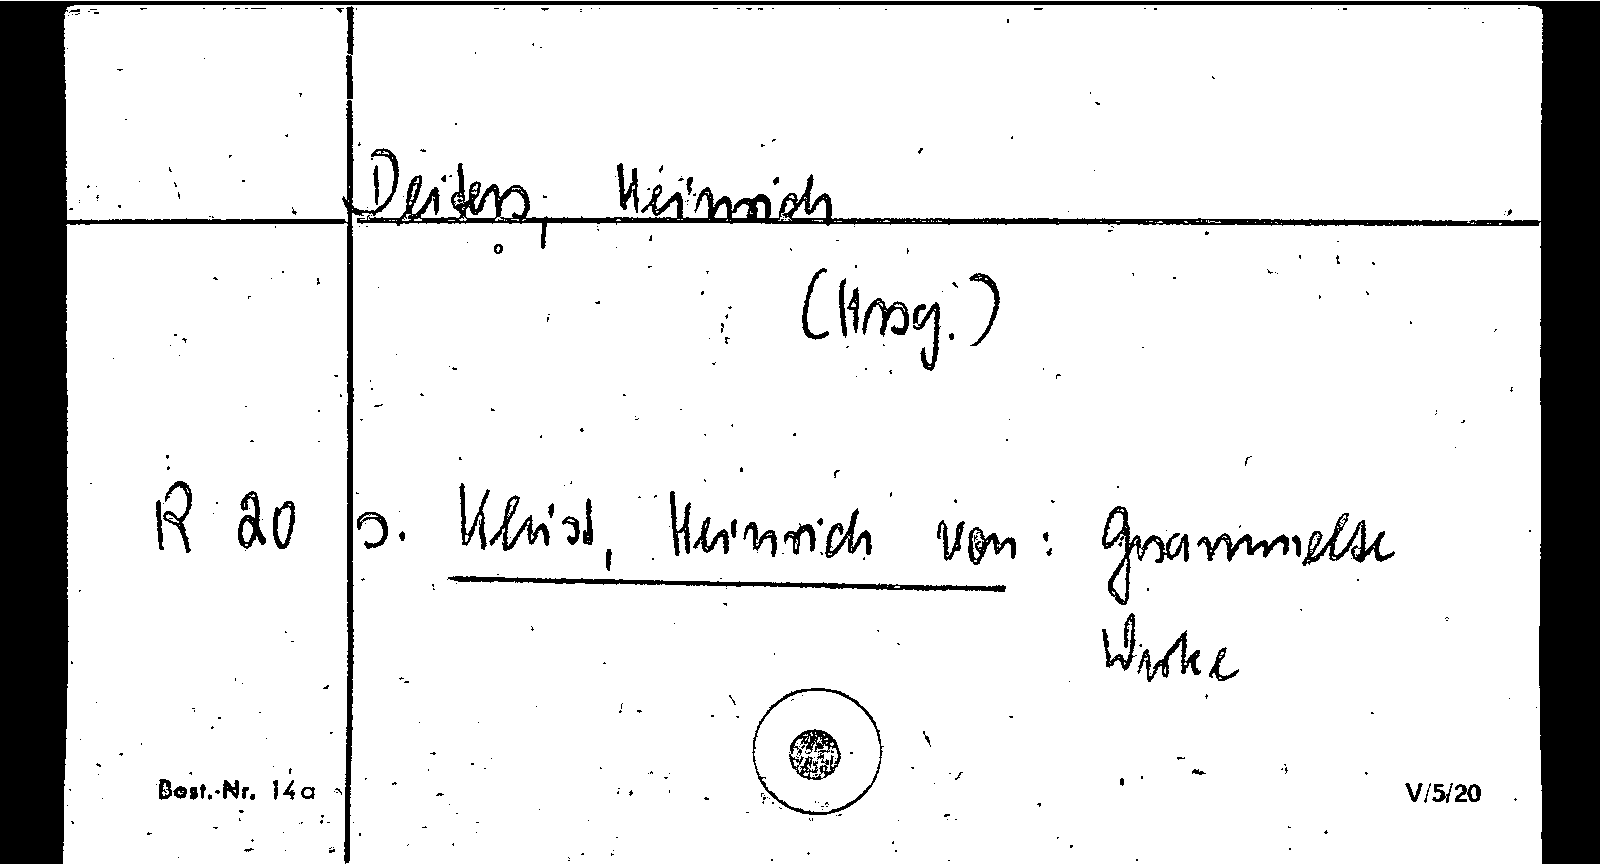 Deiters, Heinrich
(Hrsg.)
R 20 s. Kleist, Heinrich von: Gesammelte
Werke
Best.-Nr. 14a V/5/20